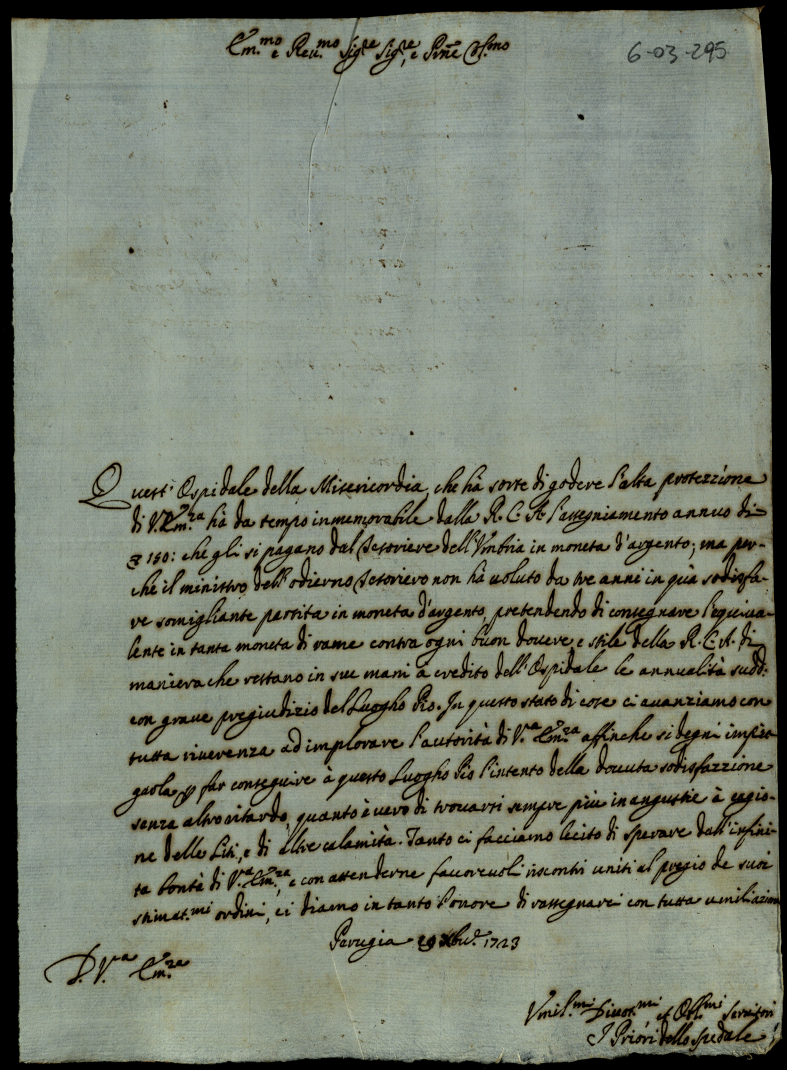 Em.mo e Reu.mo Sig.re Sig.re, e Pne Col.mo
6-03-295
Quest' Ospidale della Misericordia, che hà sorte di godere l'alta protezzione
di V. Em.za hà da tempo inmemorabile dalla R. C. A. l'assegniamento annuo di
150: che gli si pagano dal Tesoriere dell'Vmbria in moneta d'argento; ma per-
che il ministro dell'odierno Tesoriero non hà uoluto da tre anni in quà sodisfa-
re somigliante partita in moneta d'argento, pretendendo di consegnare l'equiua-
lente in tanta moneta di rame contra ogni buon douere, e stile della R. C. A. di
maniera che restano in sue mani à credito dell'Ospidale le annualità sudd:
con grave pregiudizio del Luogho Pio. In questo stato di cose ci auanziamo con
tutta riuerenza ad implorare l'autorità di V.ra Em.za affinche si degni impie-
garla p far conseguire à questo Luogho Pio l'intento della douuta sodisfazzione
senza altro ritardo, quanto è uero di trouarsi sempre più in angustie à cagio-
ne delle Liti, e di altre calamità. Tanto ci facciamo lecito di sperare dall'infini-
ta bontà di V.ra Em.za, e con attenderne fauoreuoli riscontri uniti al pregio de suoi
stimat.mi ordini, ci diamo in tanto l'onore di rassegnarci con tutta umiliazion
Perugia 29 Xbre 1723
D. V.ra Em.za
Vmil.mi Diuot.mi et Obl.mi Seruitori
I Priori dello Spedale